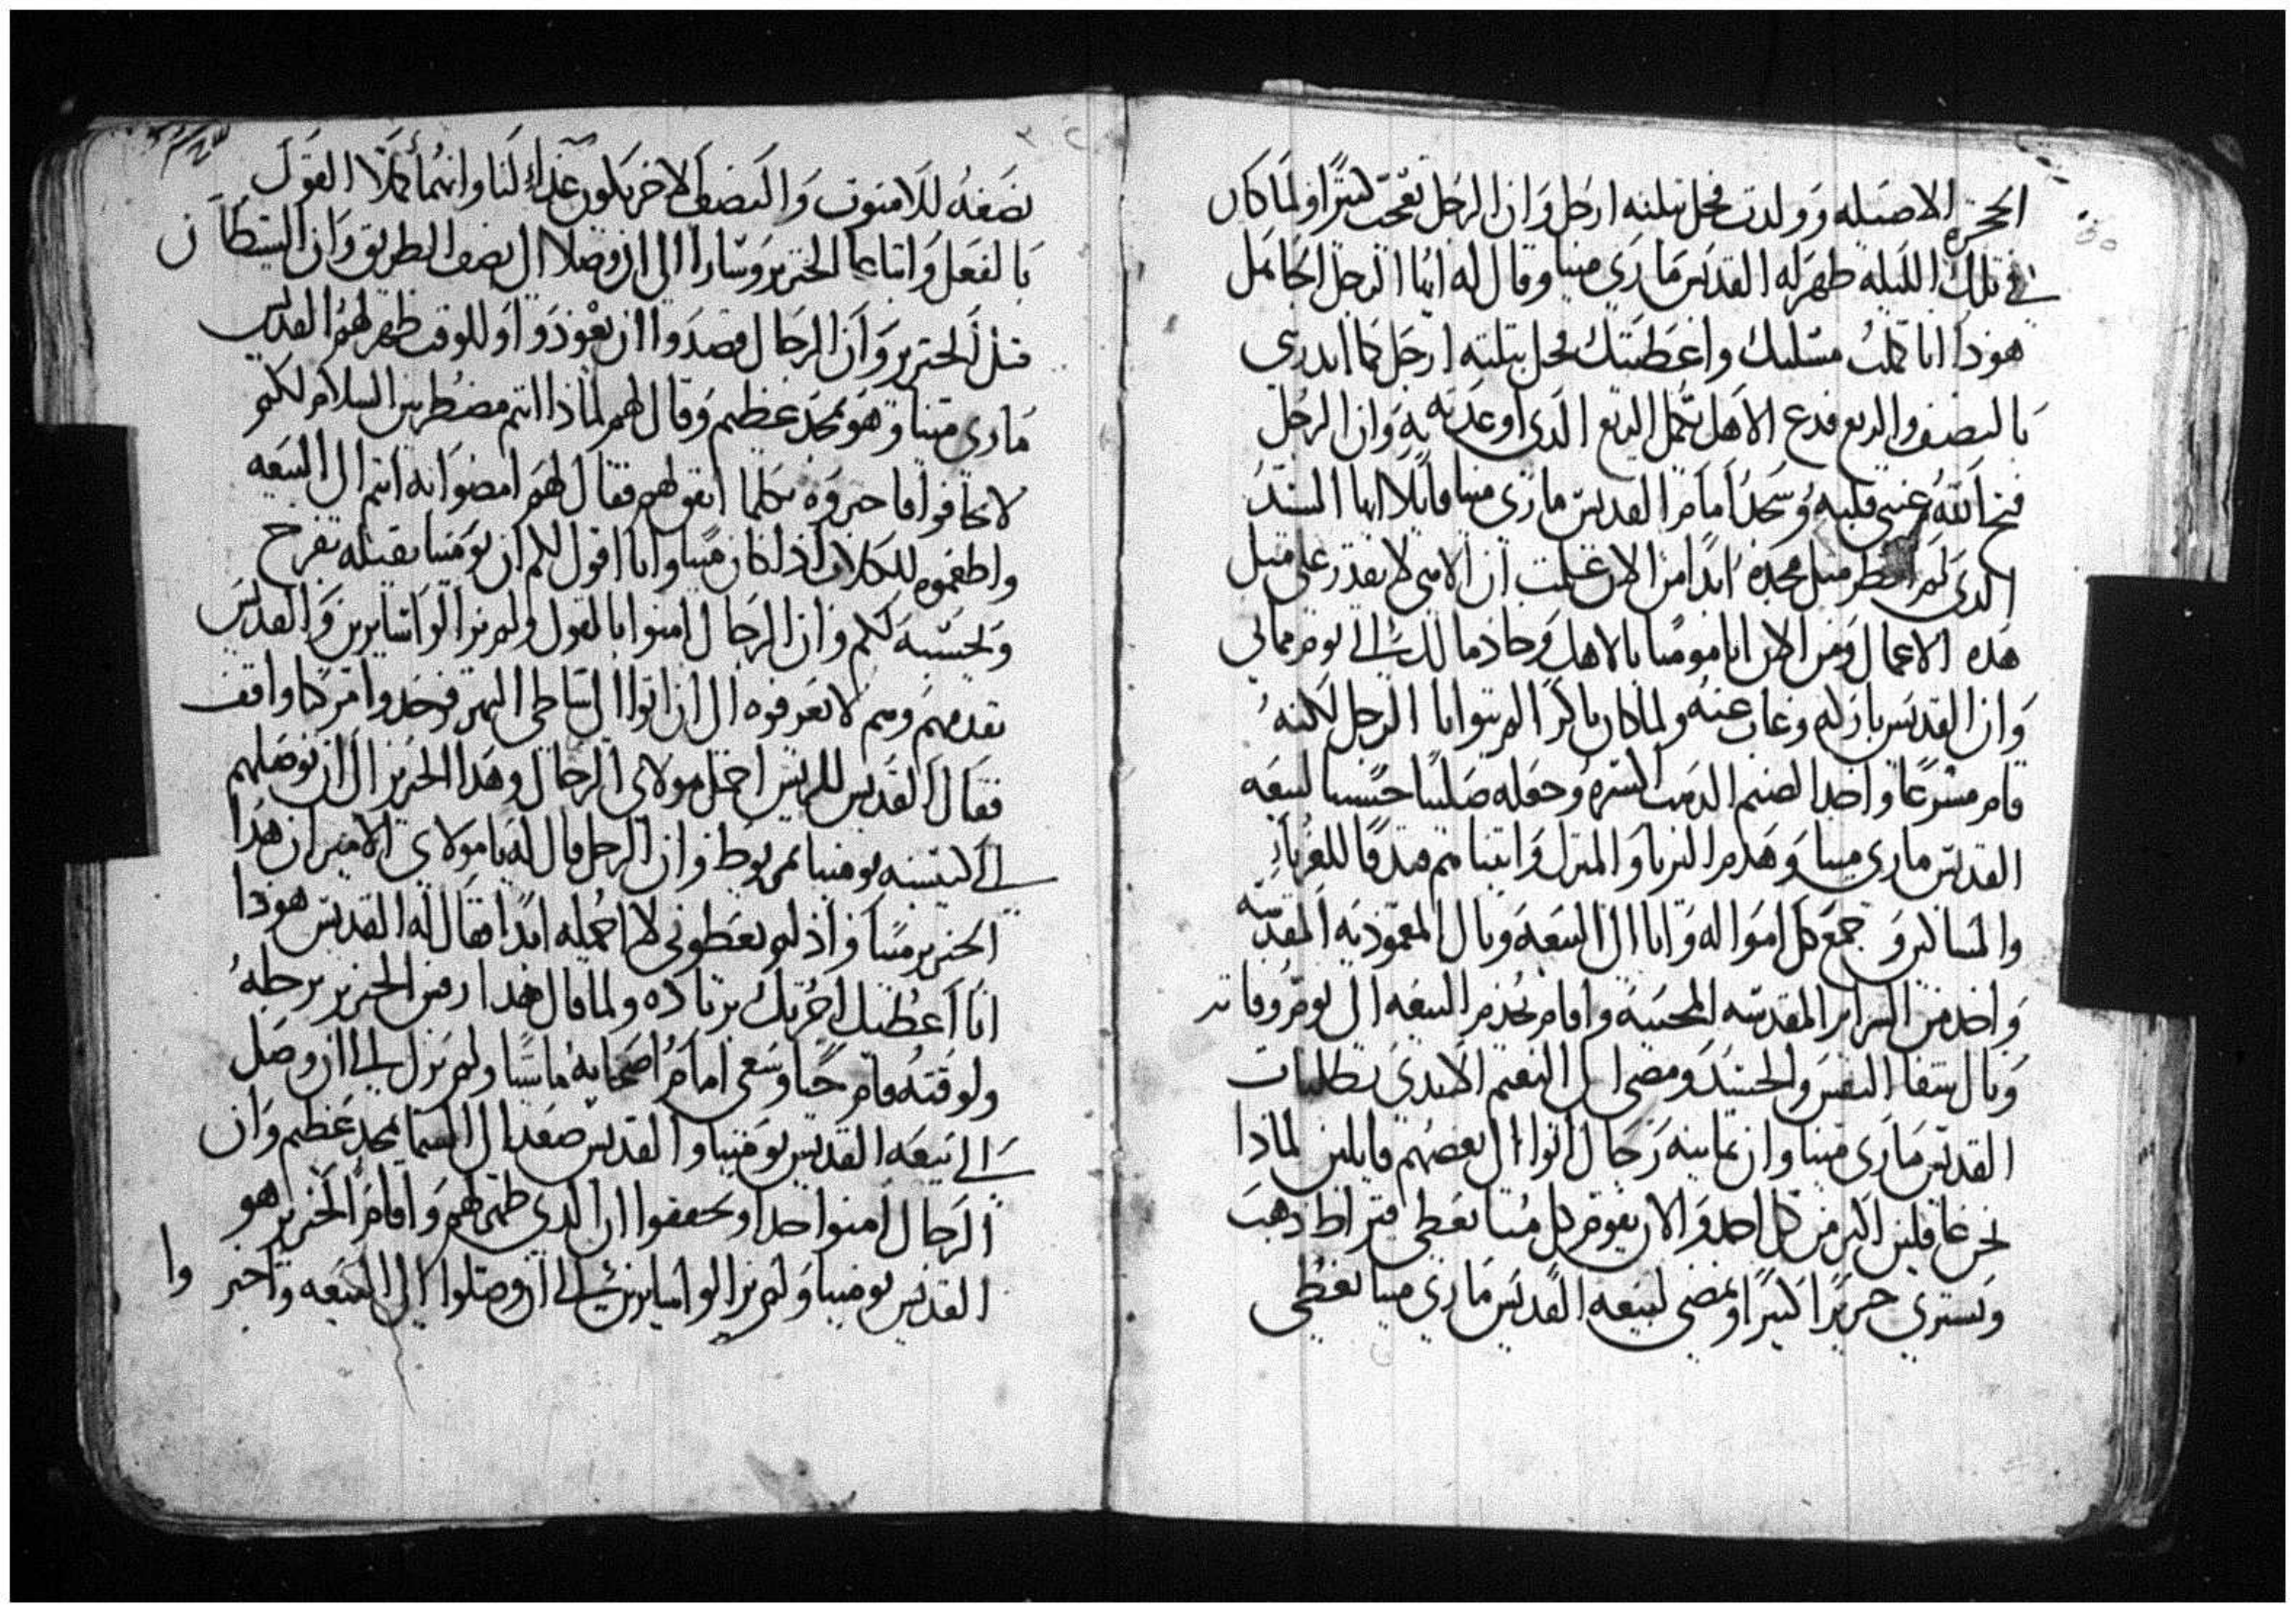 الحجره الاصيله وولدت فحل بتلته ارجل وان الرجل تعجب كتيرا ولما كان
في تلك الليله ظهر له القديس ماري مينا وقال له ايها الرجل الكامل
هودا انا كملت مسلتك واعطيتك فحل بتلته ارجل كما اندرت
بالنصف والربع فدع الاهل تكمل الربع الدي اوعدته به وان الرجل
فتح الله عيني قلبه وسجد امام القديس ماري مينا قايلا ايها السيد
الدي لم انظر متل مجده ابدا من الان علمت ان الامي لا يقدر على متل
هده الاعمال ومن الان انا مومنا بالاهك وخادما لك الى يوم مماتي
وان القديس بارك له وغاب عنه ولما كان باكرا لم يتوانا الرجل لكنه
قام مسرعا واخد الصنم الدهب كسره وجعله صليبا حسنا لبيعه
القديس ماري مينا وهدم البربا والمنزل وابتناهم فندقا للغرباء
والمساكين وجمع كل امواله واتا الى البيعه ونال المعموديه المقدسه
واخد من السراير المقدسه المحييه واقام يخدم البيعه الى يوم وفاته
ونال شفا النفس والجسد ومضى الى النعيم الابدي بطلبات
القديس ماري مينا وان تمانيه رجال اتوا الى بعضهم قايلين لمادا
نحن غافلين اكتر من كل احد والان يقوم كل منا يعطي قيراط دهب
ونشتري خنزيرا كبيرا ونمضي لبيعه القديس ماري مينا نعطي
نصفه للامنوت والنصف الاخر يكون غداء لنا وانهما كملا القول
بالفعل واتباعا الخنزير وسارا الى ان وصلا الى نصف الطريق وان الشيطان
قتل الخنزير وان الرجال قصدوا ان يعودوا وللوقت ظهر لهم القديس
ماري مينا وهو بمجد عظيم وقال لهم لمادا انتم مضطربين السلام لكم
لا تخافوا فاخبروه بكلما اتفق لهم فقال لهم امضوا به انتم الى البيعه
واطعموه للكلاب اذا كان ميتا وانا اقول لكم ان بومينا يقبله بفرح
ويحسبه لكم وان الرجال امنوا بالقول ولم يزالوا سايرين والقديس
يقدمهم وهم لا يعرفوه الى ان اتوا الى شاطى النهر فوجدوا مركبا واقف
فقال القديس للريس احمل مولاي الرجال وهدا الخنزير الى ان توصلهم
الى كنيسه بومينا بمريوط وان الرجل قال له يا مولاي الامير ان هدا
الخنزير ميتا واذ لم تعطوني لا احمله ابدا فقال له القديس هودا
انا اعطيك اجرتك بزياده ولما قال هدا رفس الخنزير برجله
ولوقته قام حيا وسعى امام اصحابه ماشيا ولم يزل الى ان وصل
الى بيعه القديس بومينا والقديس صعد الى السما بمجد عظيم وان
الرجال امنوا جدا وتحققوا ان الدي ظهر لهم واقام الخنزير هو
القديس بومينا ولم يزالوا سايرين الى ان وصلوا الى البيعه واخبر
وا